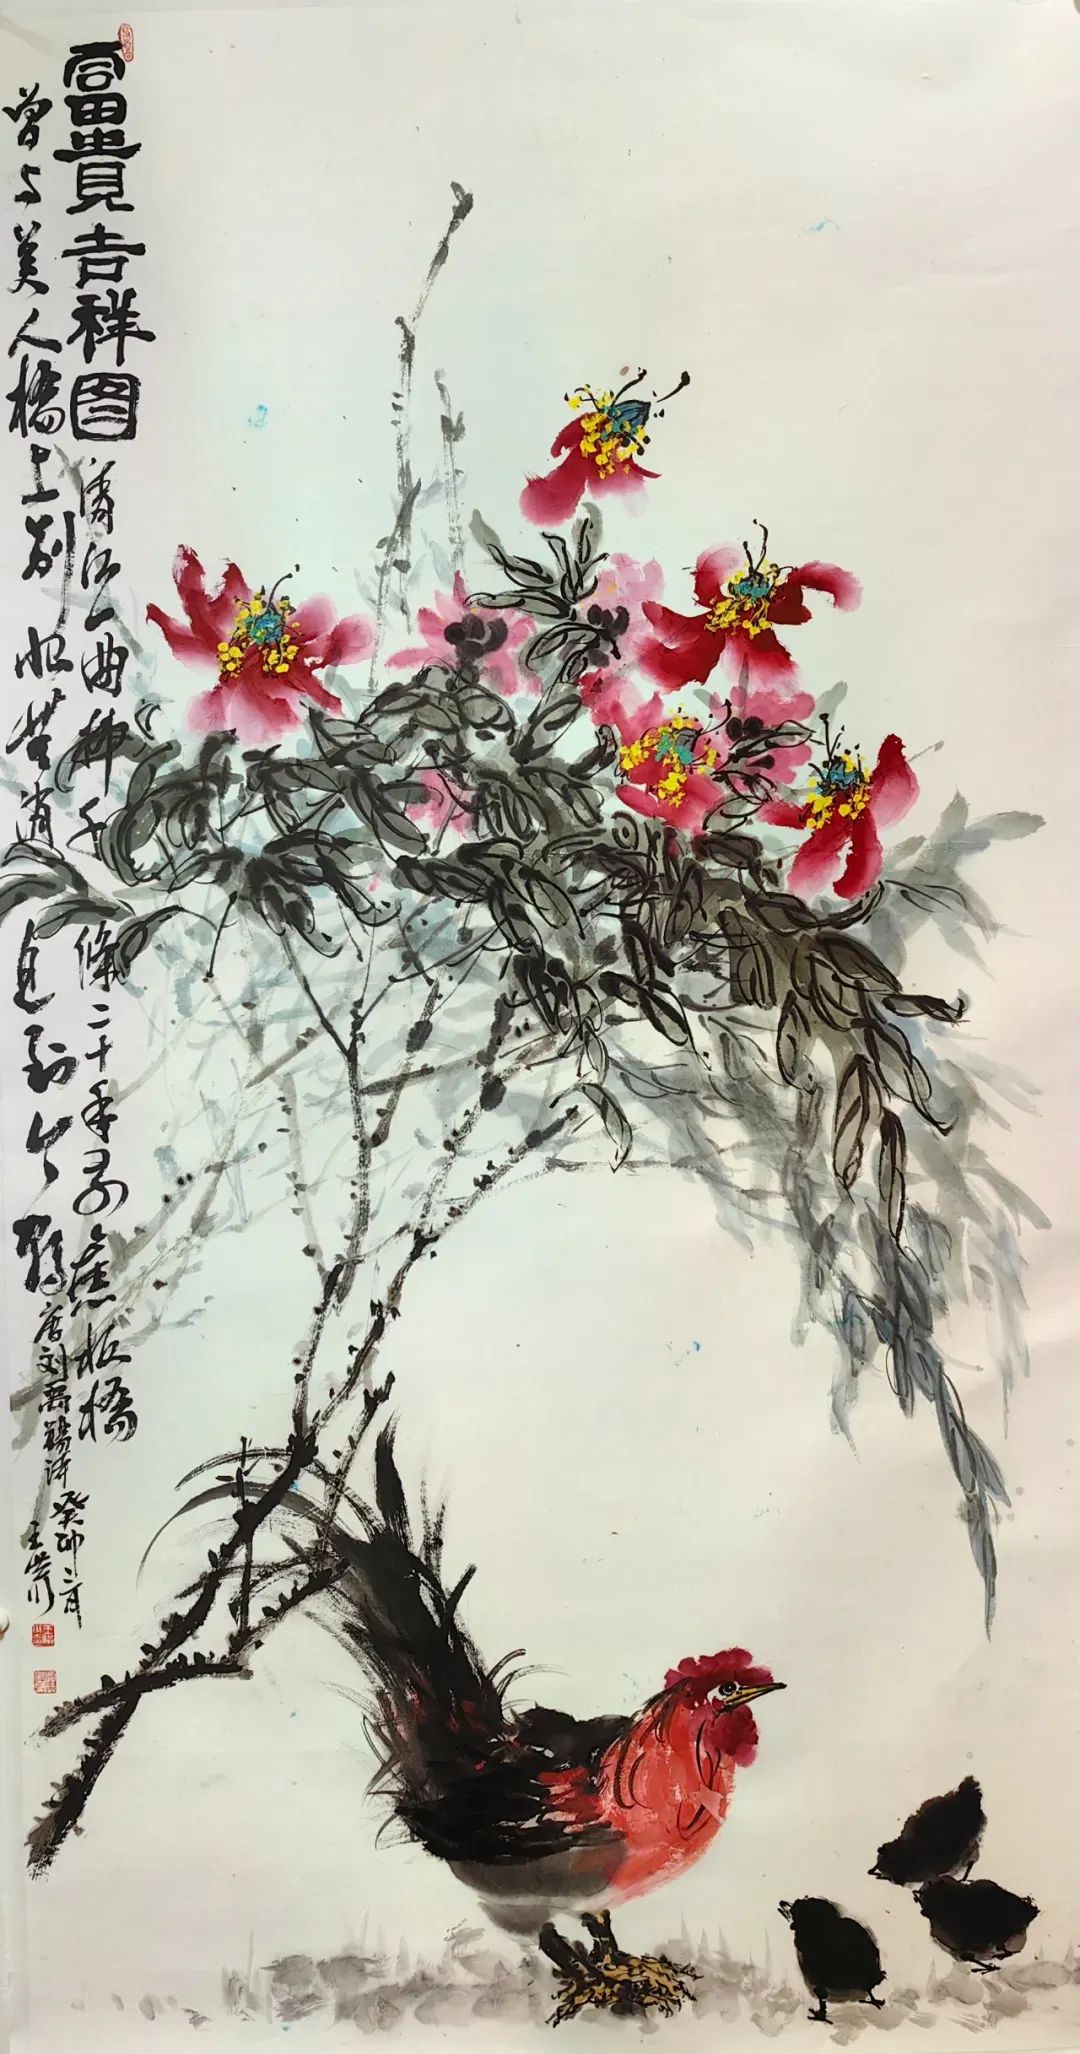 富貴吉祥图
清江一曲柳千條二十年前舊板橋
曾与美人橋上别恨無消息到今朝
唐刘禹錫诗
癸卯二月